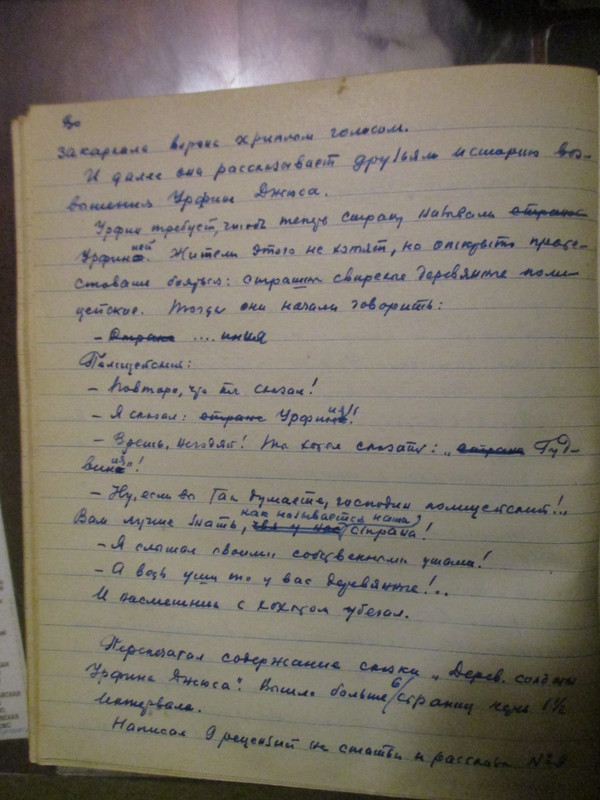 закаркала ворона хриплым голосом.
И далее она рассказывает друзьям историю воз-
вышения Урфина Джюса.
Урфин требует, чтобы теперь страну называли страной
Урфинией. Жители этого не хотят, но открыто проте-
стовать боятся: страшны свирепые деревянные поли-
цейские. Тогда они начали говорить:
– Страна .... иния
Полицейский:
– Повтори, что ты сказал!
– Я сказал: страна Урфиния!
– Врешь, негодяй! Ты хотел сказать: „страна Гуд-
виния"!
– Ну, если вы так думаете, господин полицейский!..
как называется наша
Вам лучше знать, чья у нас страна!
– Я слышал своими собственными ушами!
– А ведь уши то у вас деревянные!..
И насмешник с хохотом убегал.
Перепечатал содержание сказки „Дерев. солдаты
Урфина Джюса". Вышло больше 6 страниц через 1½
интервала.
Написал 9 рецензий на статьи и рассказы № 9